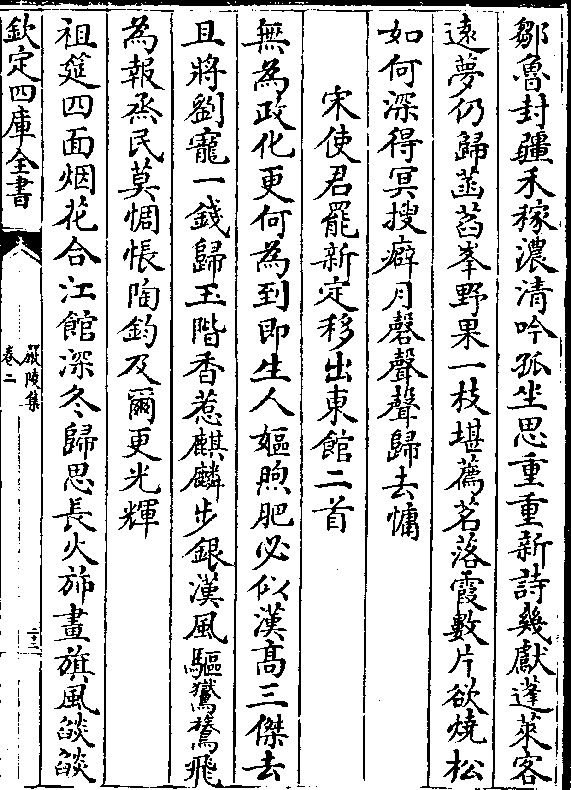 鄒魯封疆禾稼濃清吟孤坐思重重新詩幾獻蓬萊客
遠夢仍歸菡萏峯野果一枝堪薦茗落霞數片欲燒松
如何深得冥搜癖月磬聲聲歸去慵
宋使君罷新定移出東館二首
無為政化更何為到即生人嫗煦肥必似漢高三傑去
且將劉寵一錢歸玉階香惹麒麟步銀漢風驅鴛鷺飛
為報烝民莫惆悵陶鈞及爾更光輝
祖筵四面烟花合江館深冬歸思長火斾畫旗風燄燄
欽定四庫全書
嚴陵集
卷二
二十二